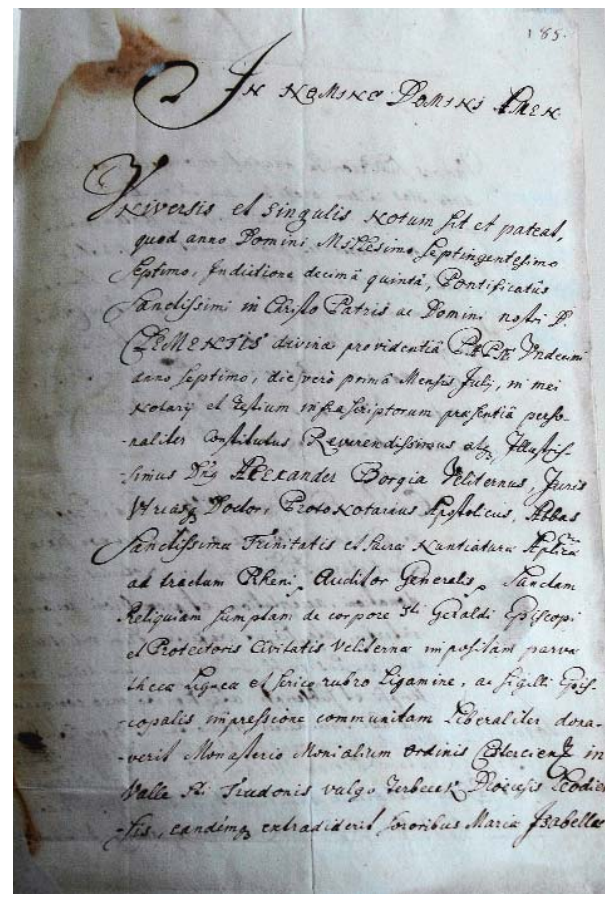 185.
In Nomine Domini Amen
Universis et singulis notum sit et pateat,
quod anno Domini Millesimo septingentesimo
septimo, Indictione decimâ quintâ, Pontificatûs
Sanctissimi in Christo Patris ac Domini nostri D.
CLEMENTIS divina providentiâ PAPÆ Undecimi
anno septimo, die verò primâ Mensis Julij, in mei
Notarij et Testium infrascriptorum præsentiâ perso-
-naliter Constitutus Reverendissimus atq3 Illustris-
-simus Dnus Alexander Borgia Veliternus, Juris
Utriusq3 Doctor, Protonotarius Apostolicus, Abbas
Sanctissimæ Trinitatis et sacræ Nuntiaturæ Aplicæ
ad tractum Rheni, Auditor Generalis, Sanctam
Reliquiam sumptam de corpore Sti Geraldi Episcopi
et Protectoris Civitatis Veliternæ impositam parvæ
thecæ Ligneæ et serico rubro Ligamine, ac sigilli Epis-
-copalis impressione communitam Liberaliter dona-
-verit Monasterio Monialium Ordinis Cisterciens in
Valle Sti Trudonis vulgo Terbeeck Diœcesis Leodien
-sis, eandémq3 extradiderit sororibus Mariæ Isabellæ